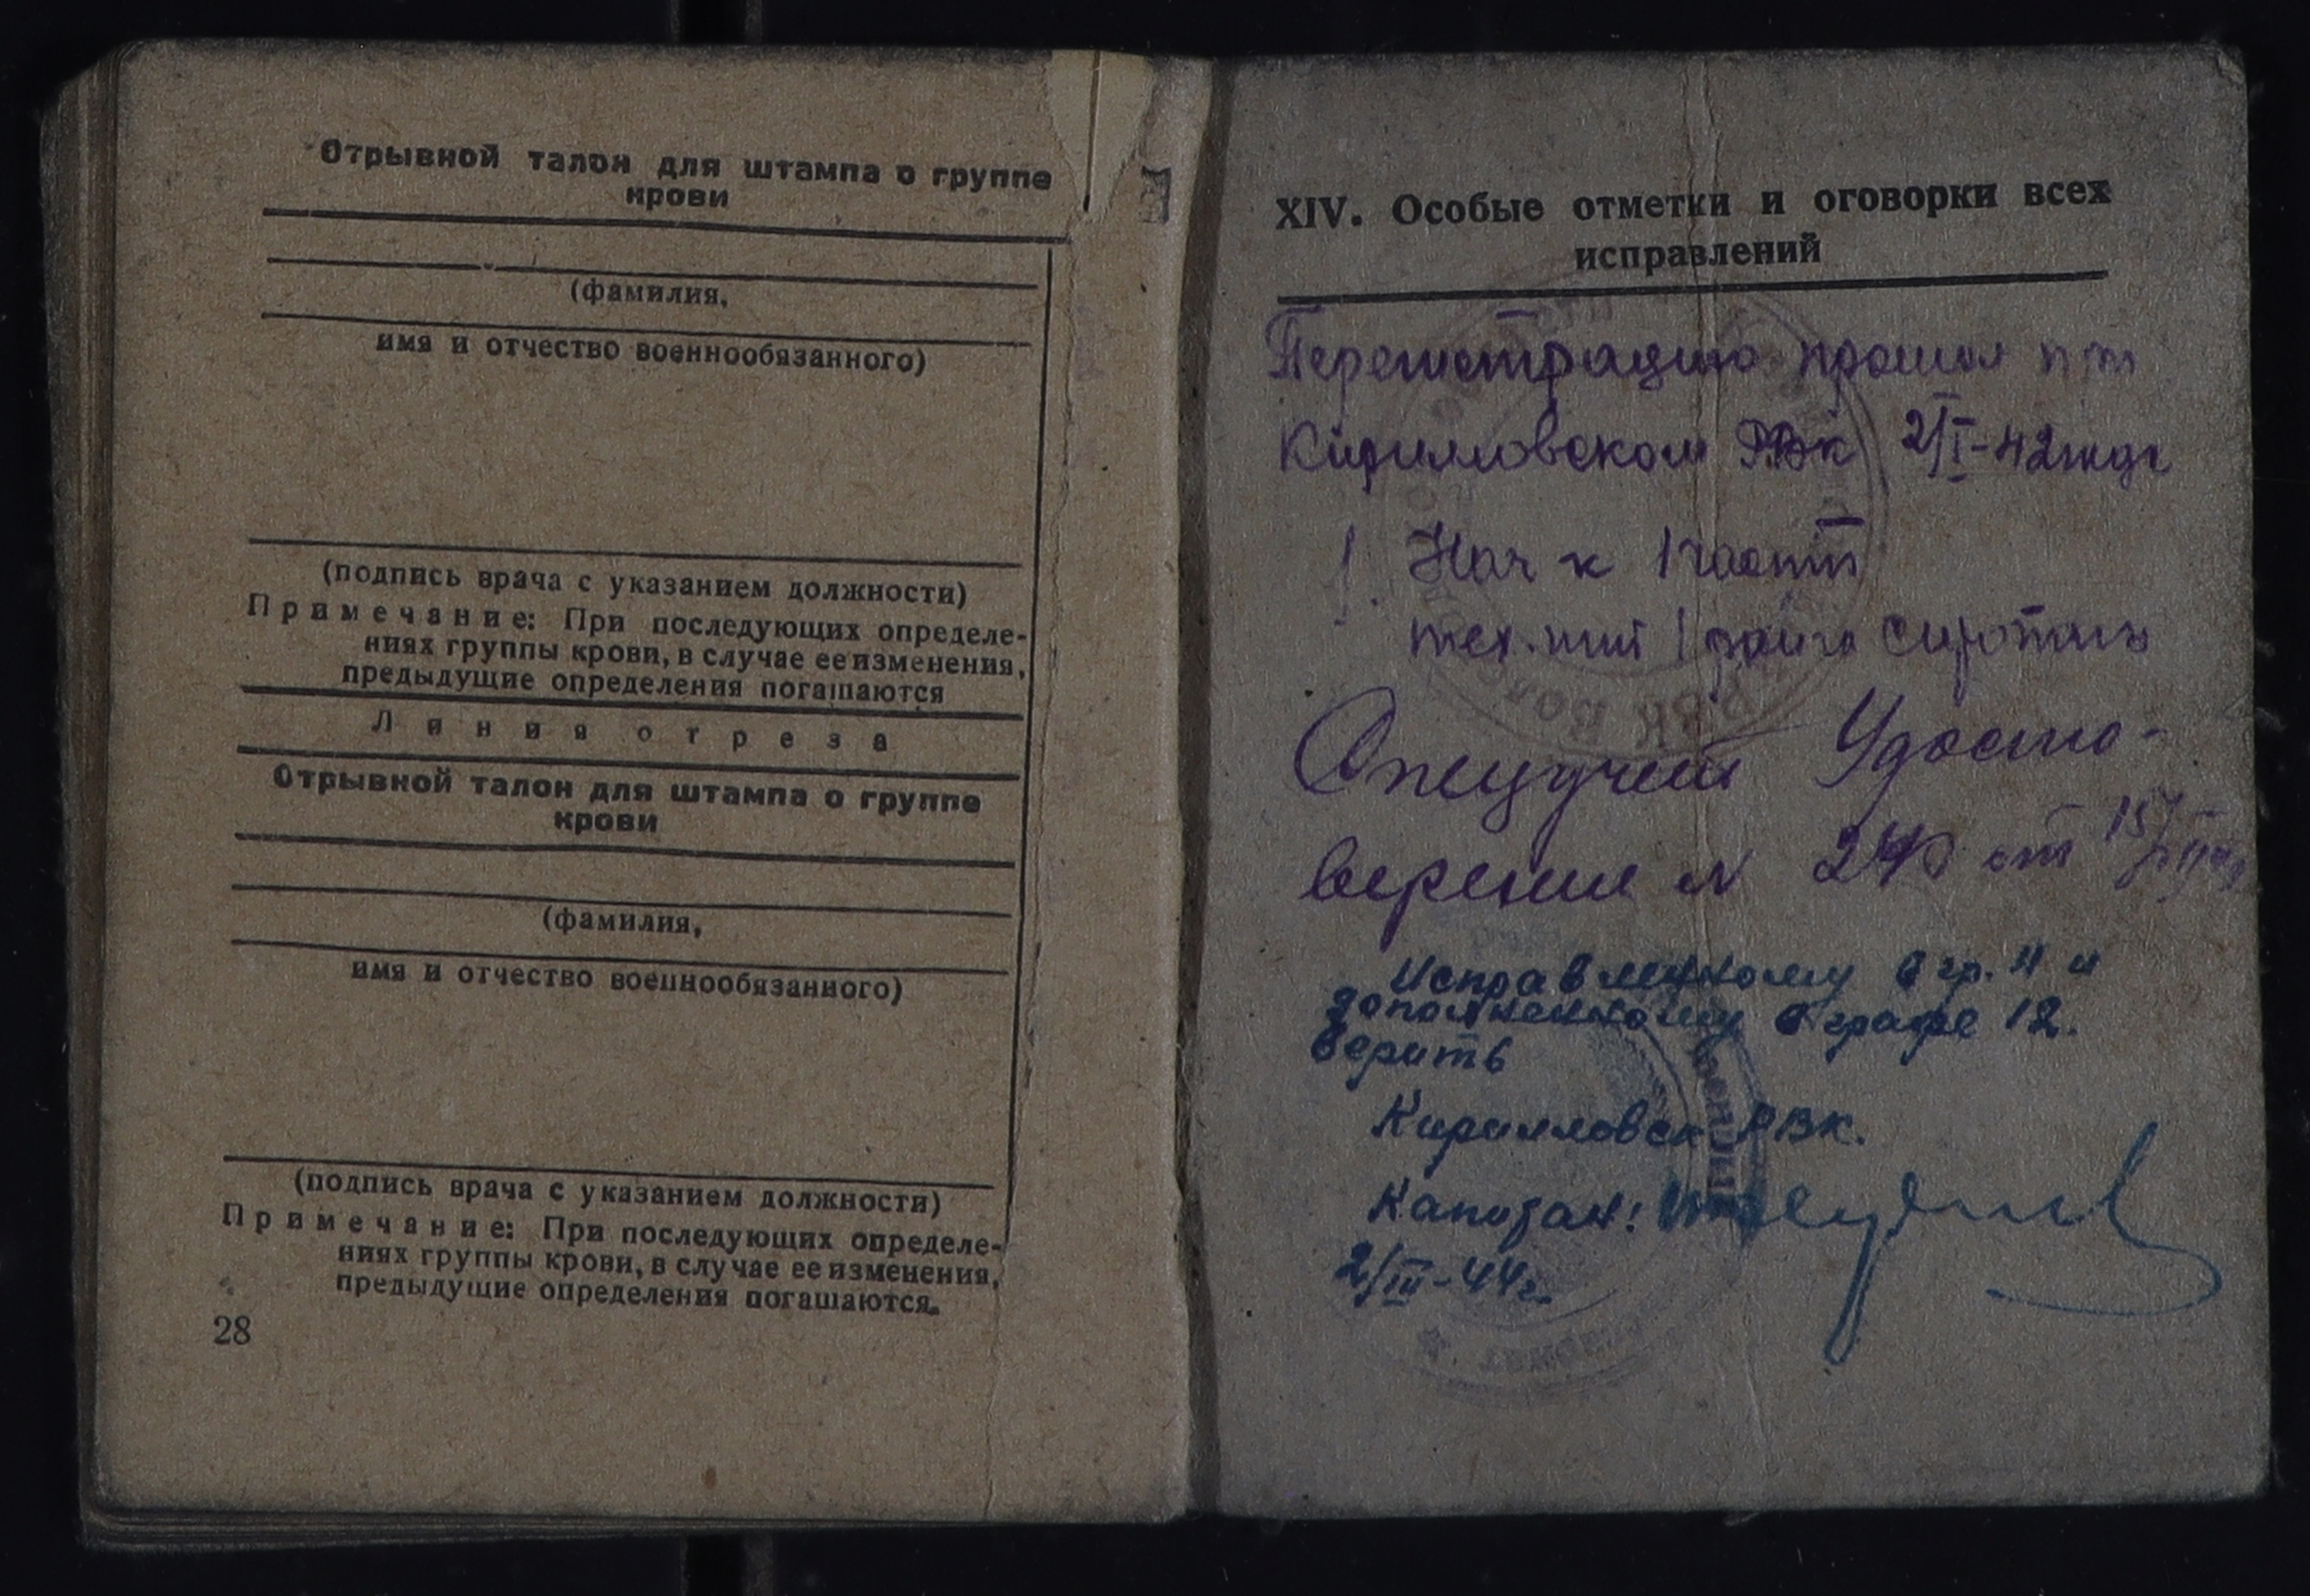 Отрывной талон для штампа о группе
крови
(фамилия,
имя и отчество военнообязанного)
(подпись врача с указанием должности)
Примечание: При последующих определе-
ниях группы крови, в случае ее изменения,
предыдущие определения погашаются
Линия отреза
Отрывной талон для штампа о группе
крови
(фамилия,
имя и отчество военнообязанного)
(подпись врача с указанием должности)
Примечание: При последующих определе-
ниях группы крови, в случае ее изменения,
предыдущие определения погашаются.
28
XIV. Особые отметки и оговорки всех
исправлений
Перегистрацию прошел при
Кирилловском РВК 2/I-42 года
Нач к 1 части
тех.инт 1 ранга
Спецучет Удосто-
верение N от 15/
Исправленному в гр. 11 и
дополненному в графе 12.
верить
Кирилловск РВК.
Капитан:
2/III-44г.
РВК Вол